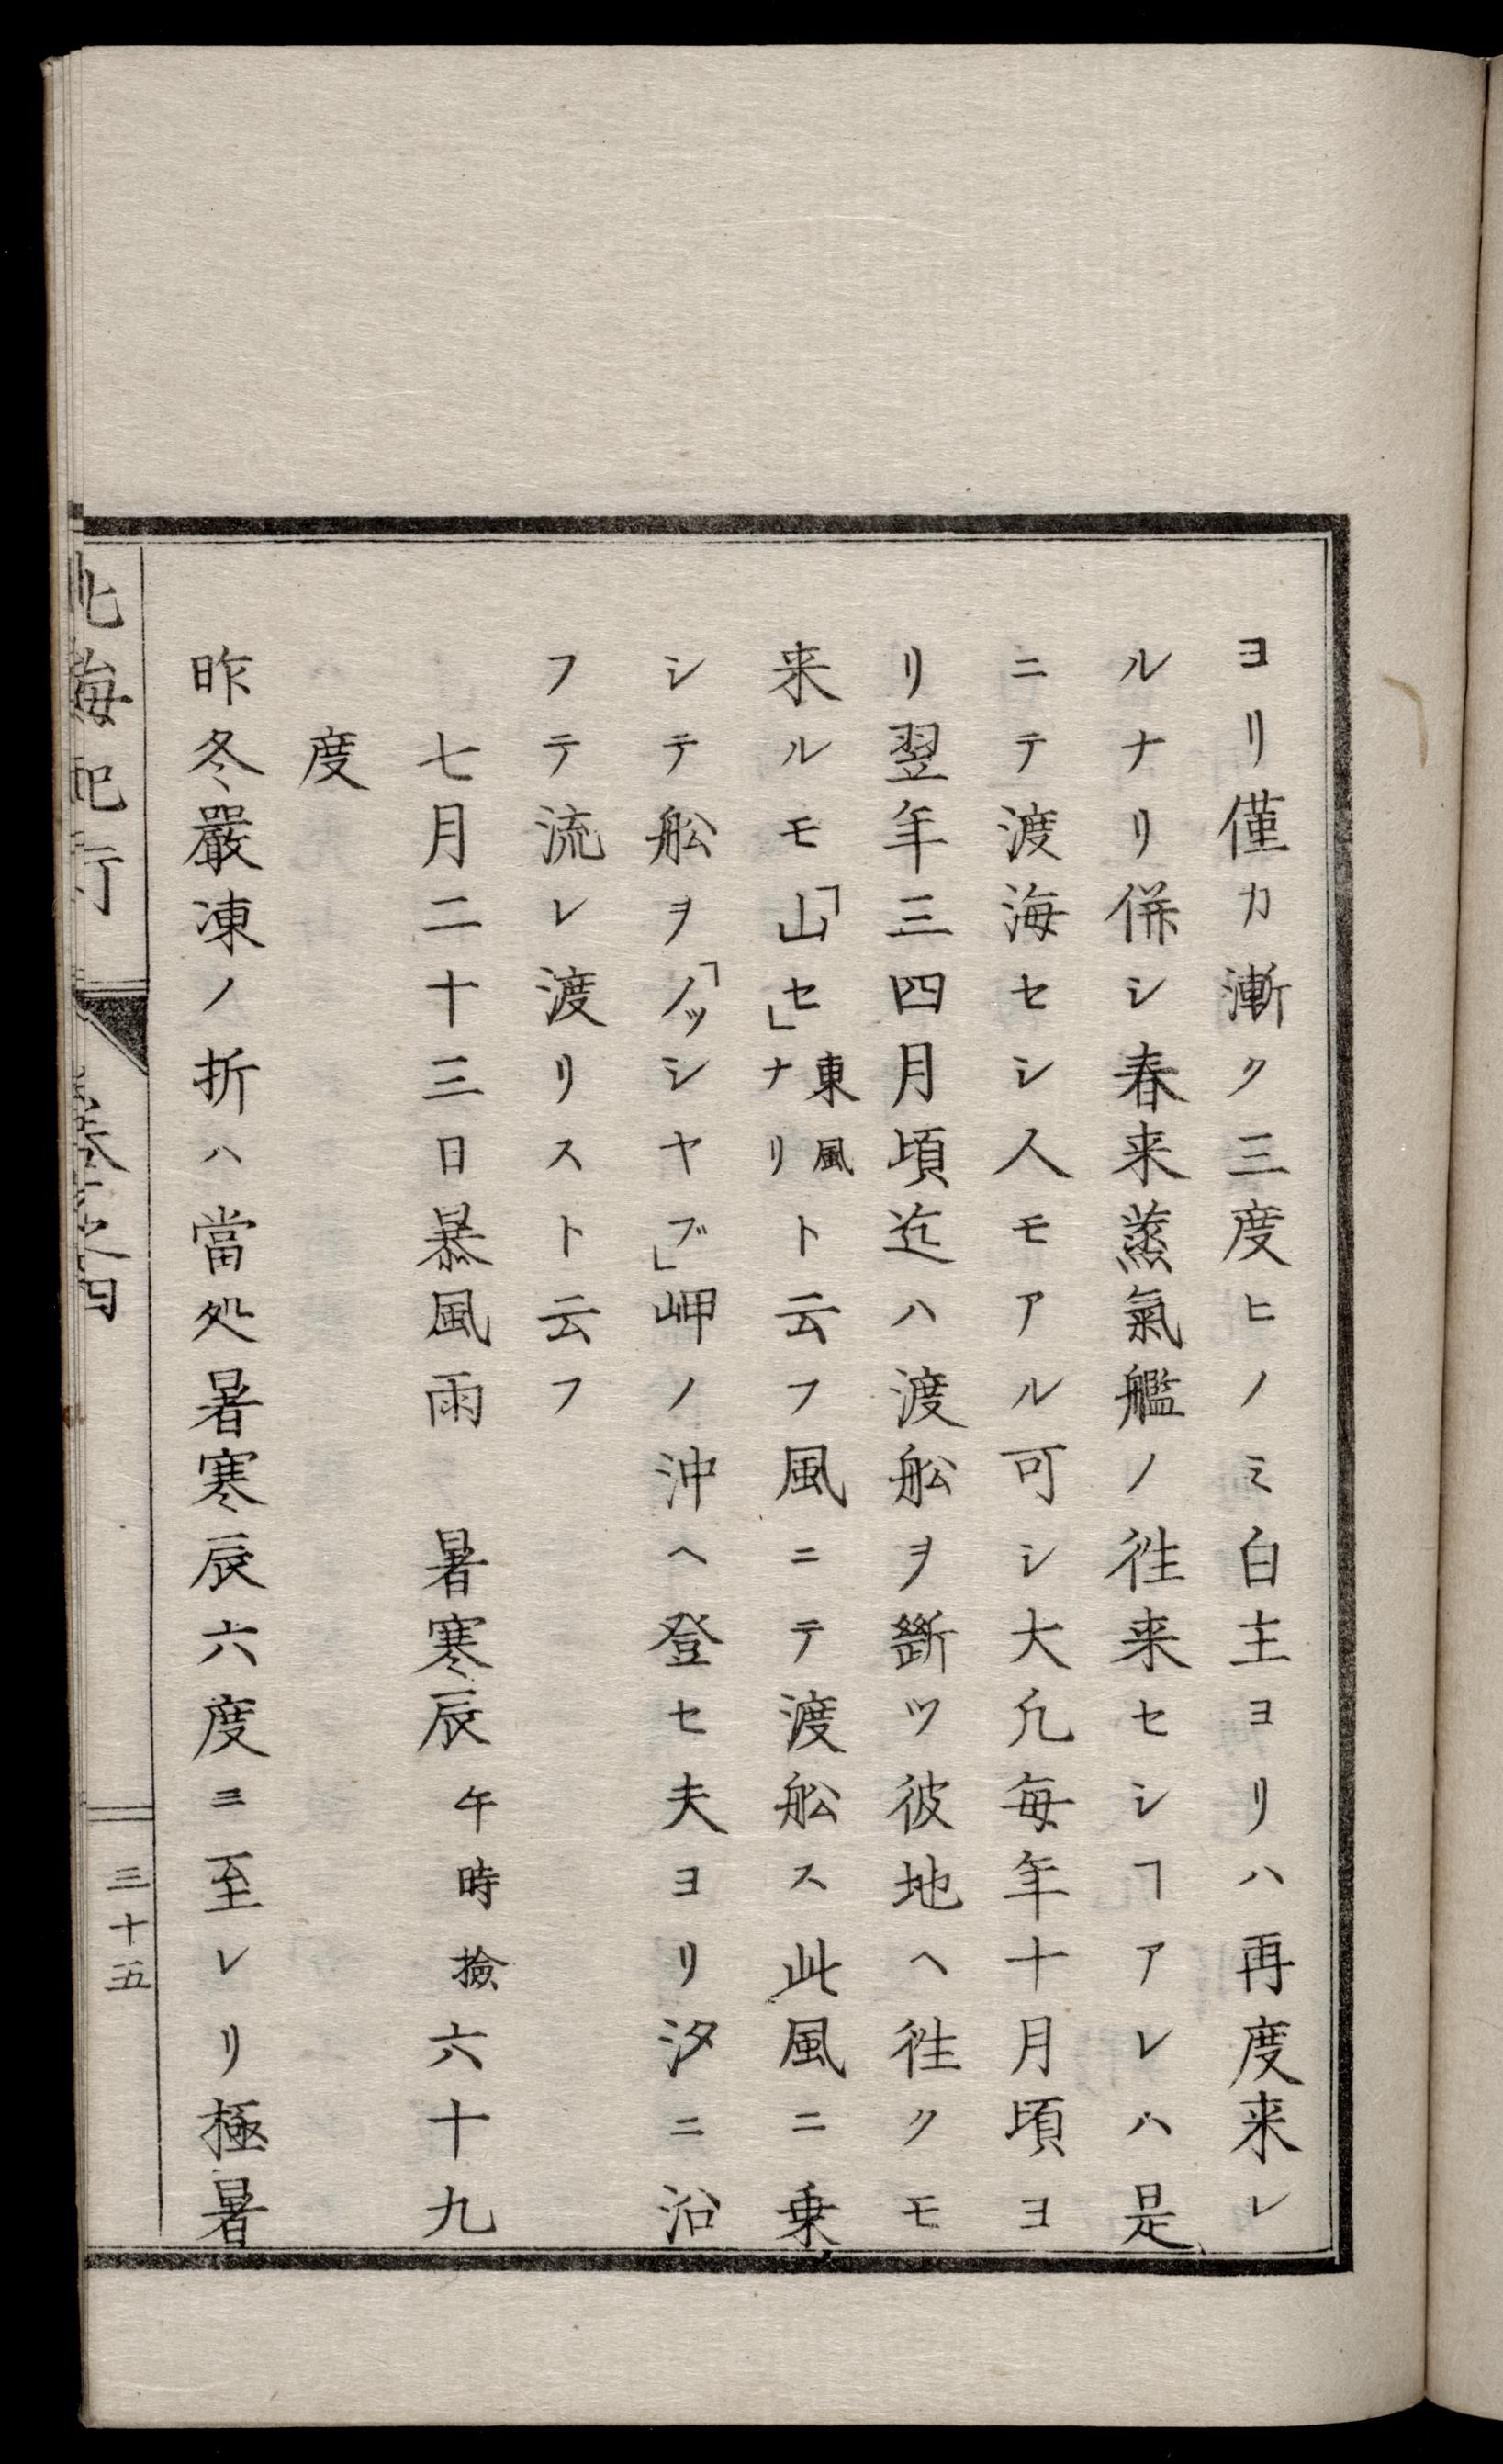 ヨリ僅カ漸ク三度ヒノミ白主ヨリハ再度来レ
ルナリ併シ春来蒸氣艦ノ徃来セシヿアレハ是
ニテ渡海セシ人モアル可シ大凣毎年十月頃ヨ
リ翌年三四月頃迄ハ渡舩ヲ斷ツ彼地ヘ徃クモ
来ルモ「山セ」東風ナリト云フ風ニテ渡舩ス此風ニ乗
シテ舩ヲ「ノッシヤブ」岬ノ沖ヘ登セ夫ヨリ汐ニ沿
フテ流レ渡リスト云フ
七月二十三日暴風雨　暑寒辰午時撿六十九
度
昨冬嚴凍ノ折ハ當処暑寒辰六度ヨ至レリ極暑
北海紀行　卷之四　三十五